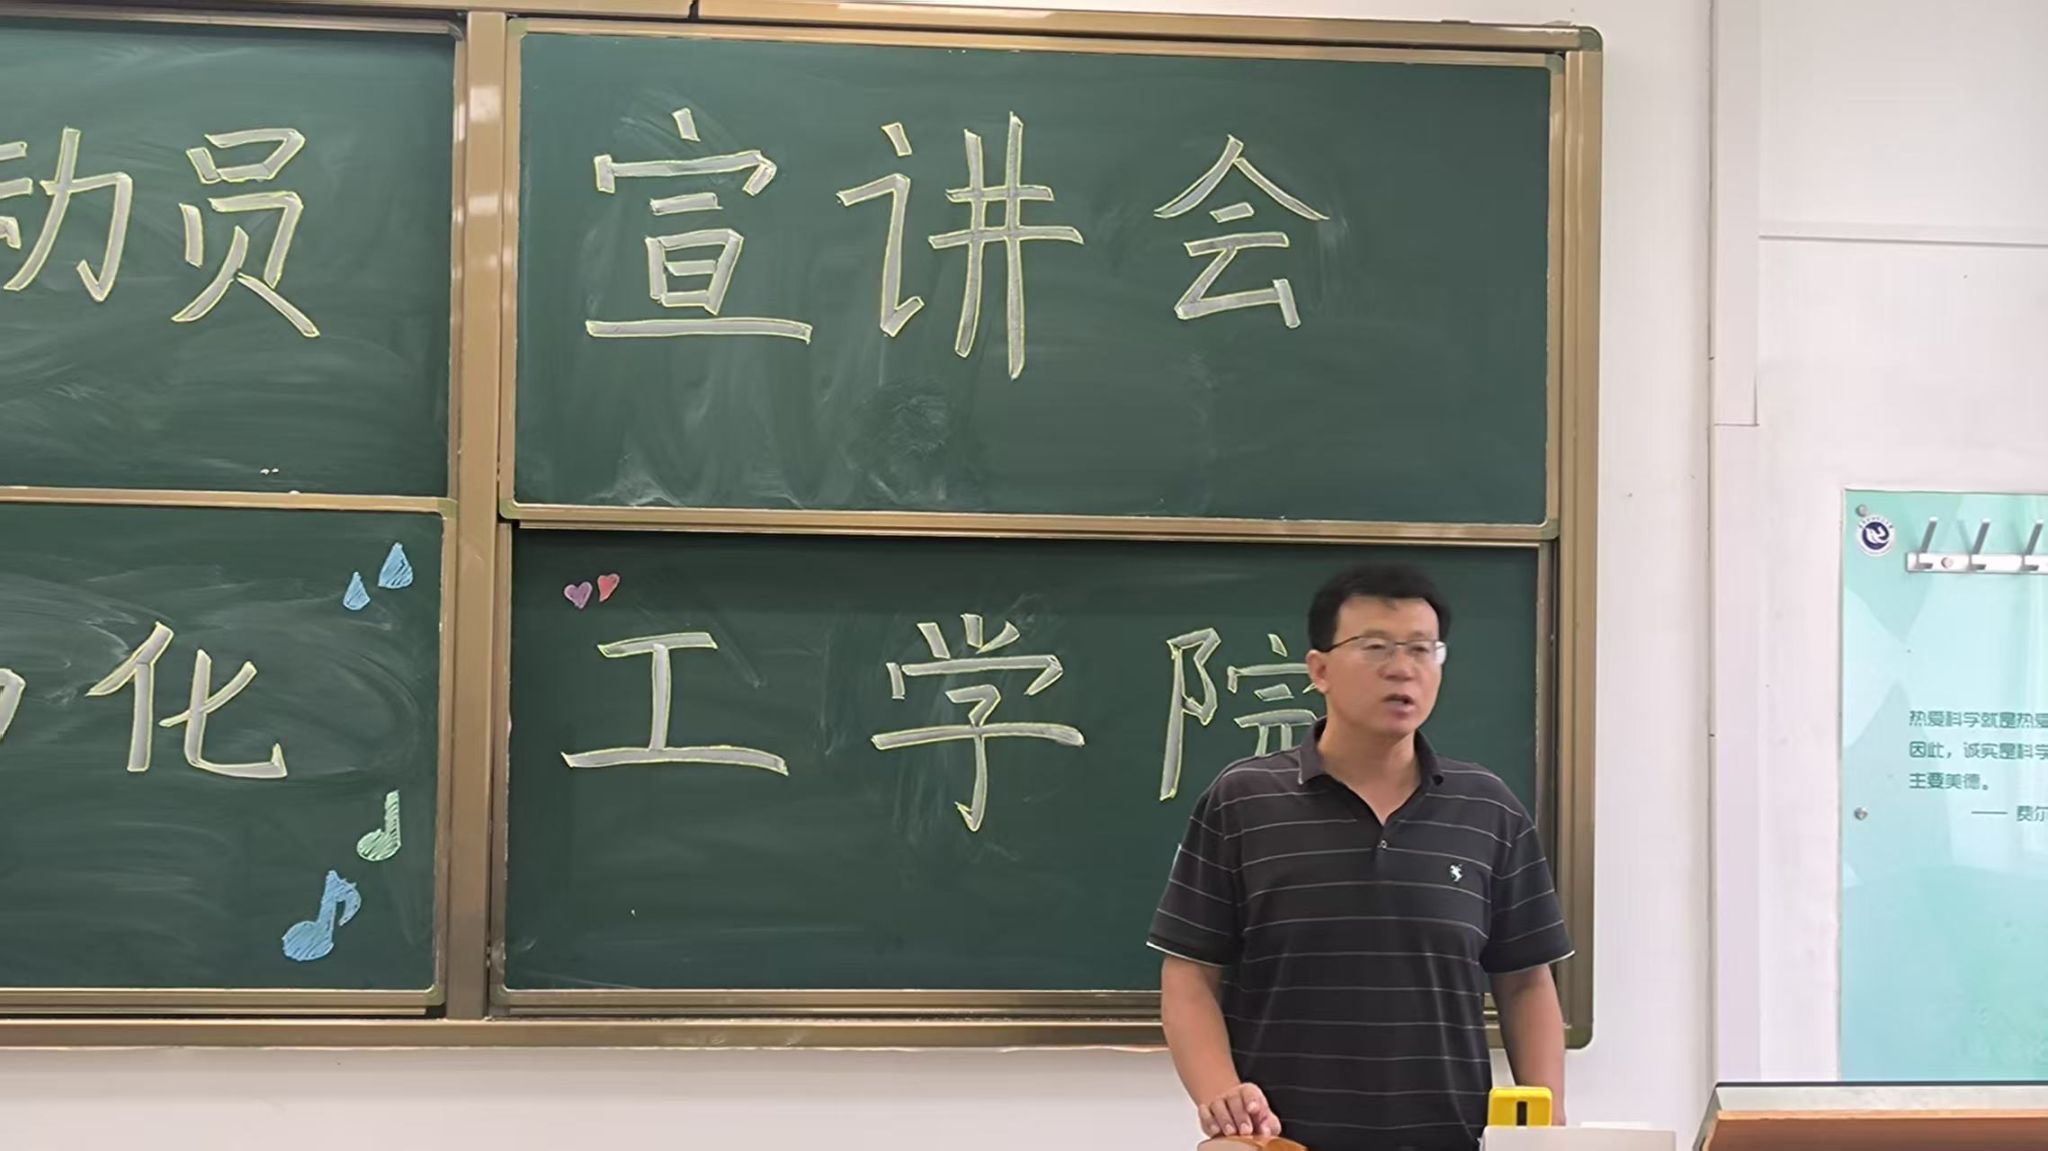 动员 宣讲会
化工学院
热爱科学就是热爱
因此，诚实是科学
主要美德。
—— 费尔